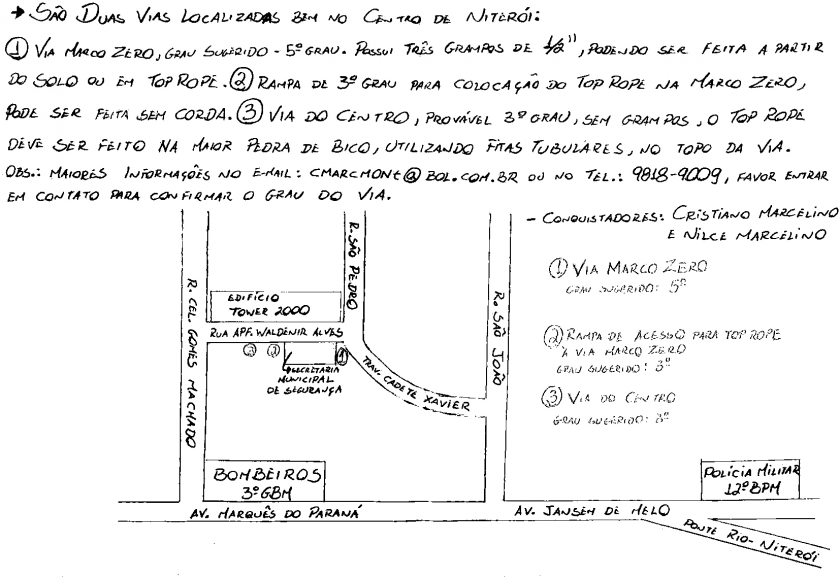 → São Duas Vias Localizadas bem no Centro de Niterói:
① Via Marco Zero, Grau Sugerido - 5º grau. Possui Três Grampos de 1/2", podendo ser feita a partir
do solo ou em Top Rope. ② Rampa de 3º grau para colocação do Top Rope na Marco Zero,
pode ser feita sem corda. ③ Via do Centro, provável 3º grau, sem grampos, o Top Rope
deve ser feito na maior pedra de bico, utilizando fitas tubulares, no topo da via.
Obs.: Maiores Informações no e-mail: cmarcmont@bol.com.br ou no tel.: 9818-9009, favor entrar
em contato para confirmar o grau do via.
- Conquistadores: Cristiano Marcelino
e Nilce Marcelino
① Via Marco Zero
Grau sugerido: 5º
② Rampa de Acesso para Top Rope
à Via Marco Zero
Grau sugerido: 3º
③ Via do Centro
Grau sugerido: 3º
R. São Pedro
R. Cel. Gomes Machado
R. São João
Edifício
Tower 2000
Rua Apf. Waldenir Alves
③ ② ①
Secretaria
Municipal
de Segurança
Trav. Cadete Xavier
Bombeiros
3º GBM
Polícia Militar
12º BPM
Av. Marquês do Paraná
Av. Jansen de Melo
Ponte Rio-Niterói